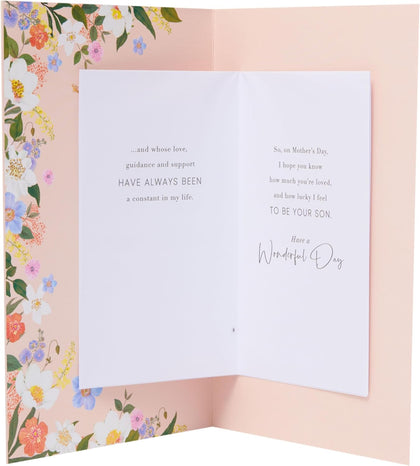 ...and whose love,
guidance and support
HAVE ALWAYS BEEN
a constant in my life.
So, on Mother's Day,
I hope you know
how much you're loved,
and how lucky I feel
TO BE YOUR SON.
Have a
Wonderful Day